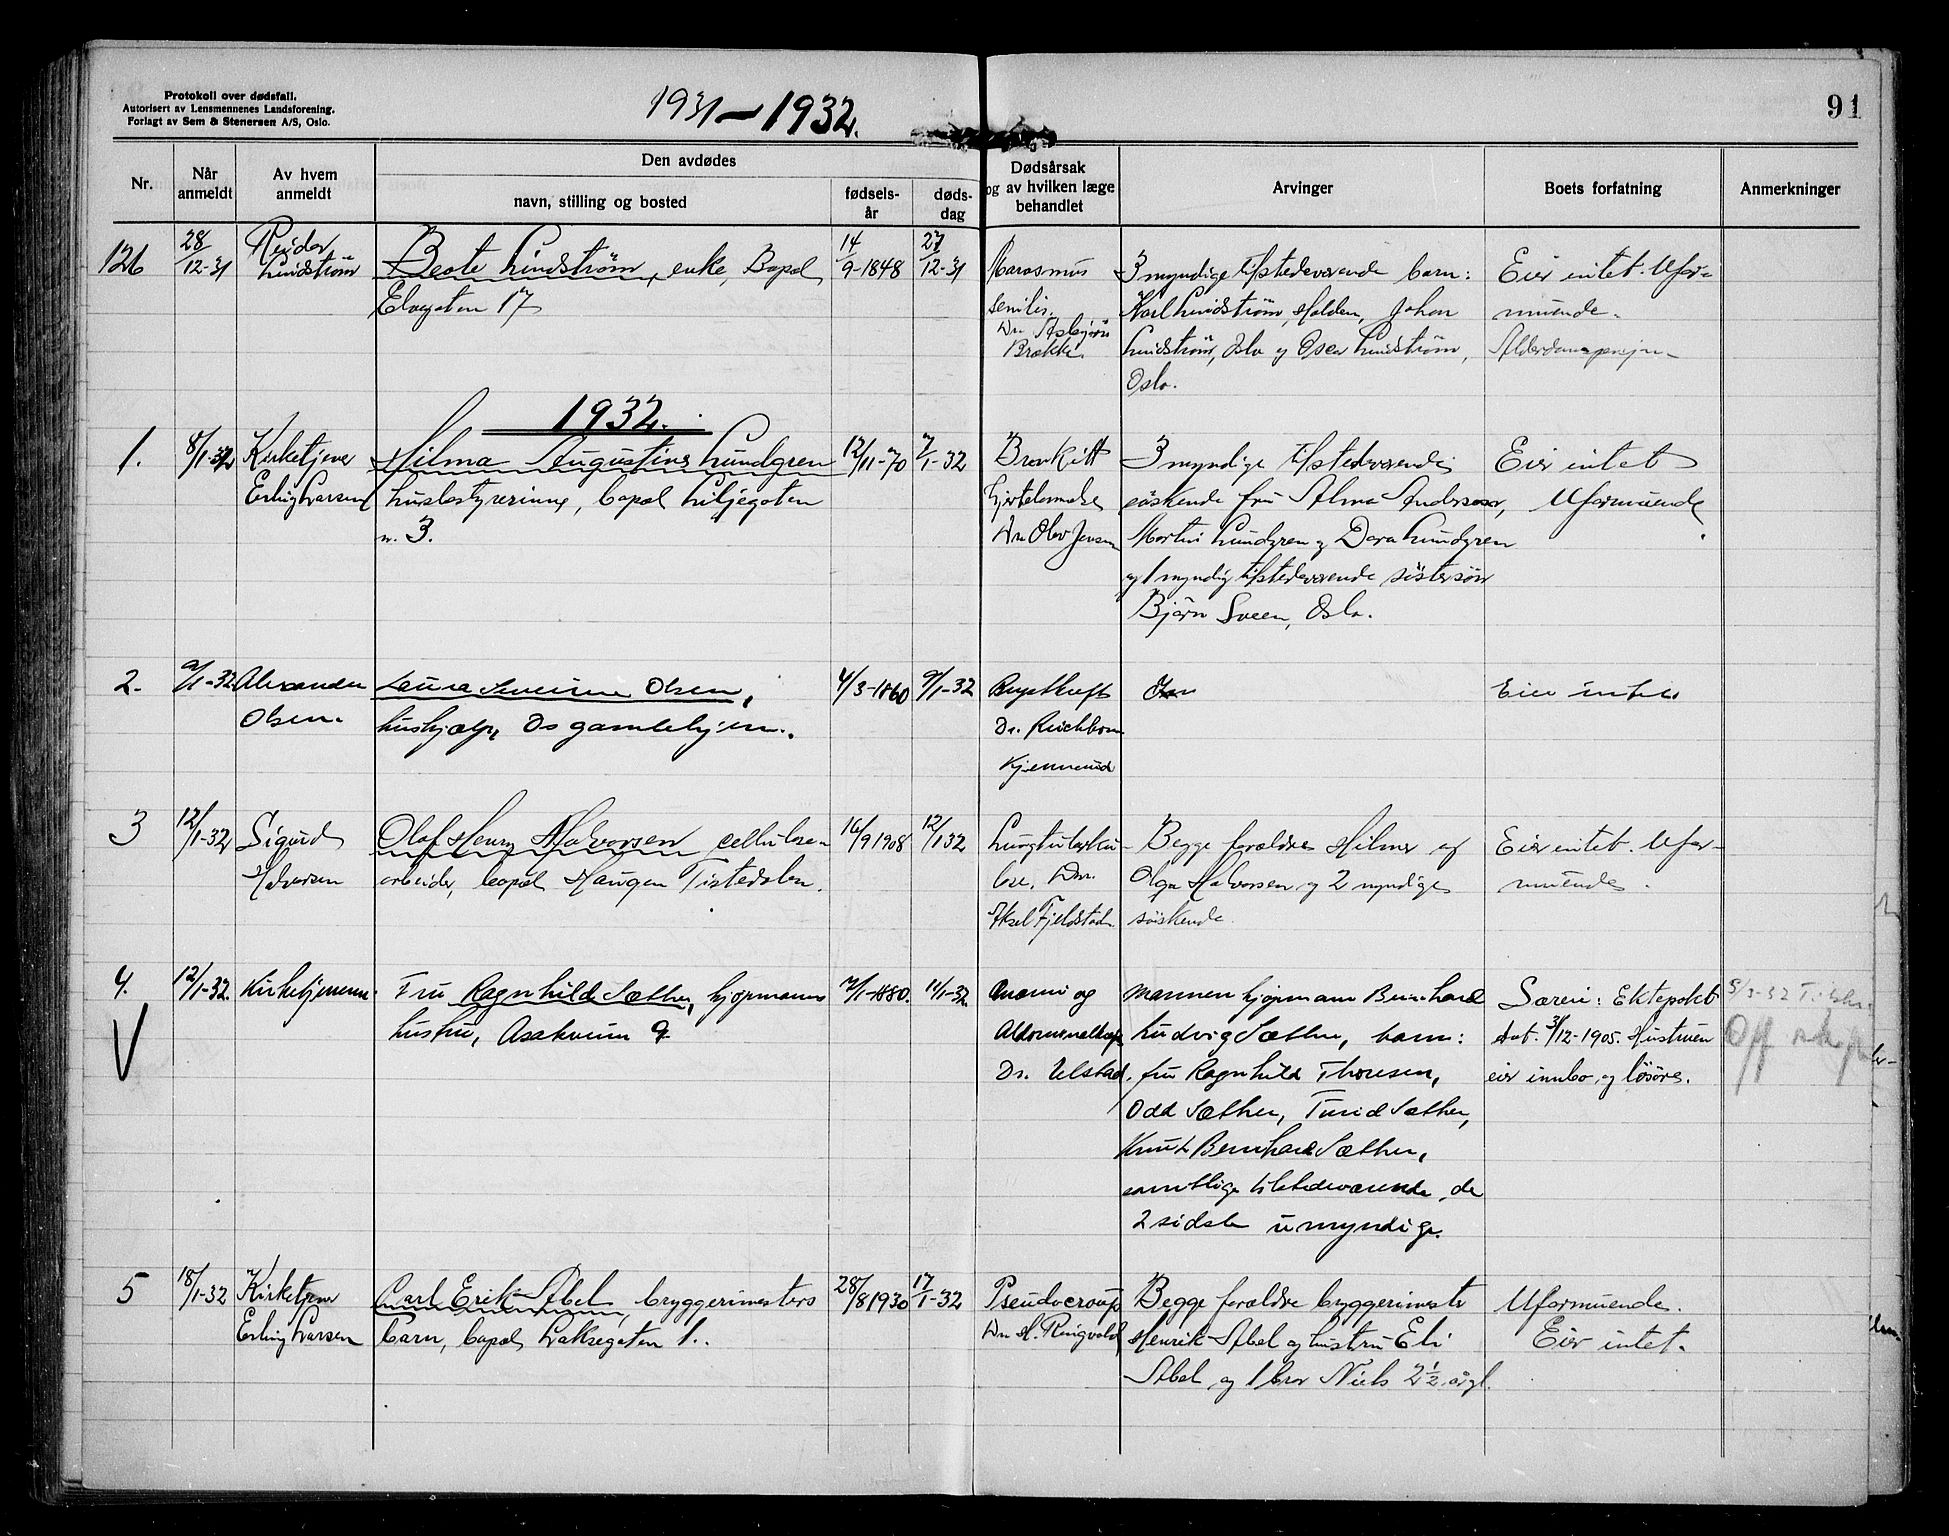 Protokoll over dødsfall.
Autorisert av Lensmennenes Landsforening.
Forlagt av Sem & Stenersen A/S, Oslo.
1931 — 1932.
91
Nr.
Når anmeldt
Av hvem anmeldt
Den avdødes
navn, stilling og bosted
fødselsår
dødsdag
Dødsårsak og av hvilken læge behandlet
Arvinger
Boets forfatning
Anmerkninger
126
28/12-31
Reidar
Lindstrøm
Beate Lindstrøm, enke, Bopæl
Elvegaten 17
14/9-1848
27/12-31
Marasmus
senilis.
Dr. Asbjørn
Brække.
3 myndige tilstedeværende barn:
Karl Lindstrøm, Halden, Johan
Lindstrøm, Oslo og Oscar Lindstrøm,
Oslo.
Eier intet. Ufor-
muende.
1932.
1.
8/1-32
Kirketjener
Erling Larsen
Hilma Augustine Lundgren
husbestyrerinne, bopæl Liljegaten
nr. 3.
12/11-70
7/1-32
Bronkitt
Hjertelammelse
Dr. Olav Jensen
3 myndige tilstedeværende
søskende fru Alma Anderssen,
Martin Lundgren og Dora Lundgren
og 1 myndig tilstedeværende søstersøn
Bjørn Sveen, Oslo.
Eier intet
Uformuende
2.
9/1-32
Alexander
Olsen.
Laura Severine Olsen,
hushjælp, Os gamlehjem.
4/3-1860
9/1-32
Brystkreft
Dr. Reichborn
Kjennerud
Eier intet.
3
12/1-32
Sigurd
Halvorsen
Olaf Henry Halvorsen cellulose-
arbeider, bopæl Haugen Tistedalen.
16/9 1908
12/1 32
Lungetuberku-
lose, Dr.
Aksel Fjeldstad.
Begge forældre Hilmer og
Olga Halvorsen og 2 myndige
søskende
Eier intet. Ufor-
muende.
4.
V
12/1-32.
Kirketjeneren.
Fru Ragnhild Sæther, kjøpmanns
hustru, Asakveien 9
7/1-1880.
11/1-32
Anæmi og
Dr. Ulstad.
Mannen kjøpmann Bernhard
Ludvig Sæther, barn:
fru Ragnhild Thoresen,
Odd Sæther, Turid Sæther,
Knut Bernhard Sæther,
samtlige tilstedeværende, de
2 sidste umyndige.
Særeie: Ektepakt
dat. 31/12-1905. Hustruen
eier innbo og løsøre.
5/3-32
Off
5
18/1-32
Kirketjener
Erling Larsen
Carl Erik Abel, bryggerimesters
barn, bopæl Laksegaten 1.
28/8 1930
17/1-32
Pseudocroup
Dr. H. Ringvold
Begge forældre bryggerimester
Henrik Abel og hustru Eli
Abel og 1 bror Niels 2 1/2 årgl.
Uformuende.
Eier intet.